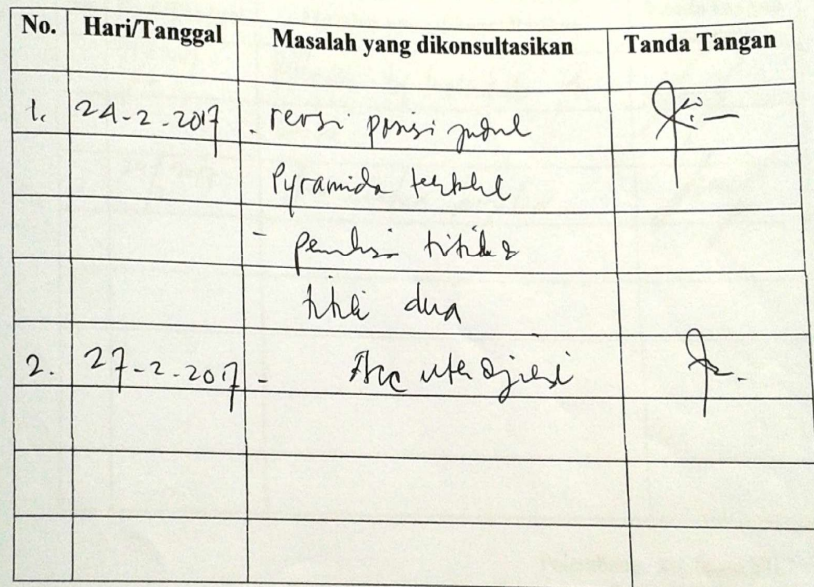 No. Hari/Tanggal Masalah yang dikonsultasikan Tanda Tangan
1. 24-2-2017 - revsi posisi judul
Pyramida
- titik &
titik dua
2. 27-2-2017 - Acc